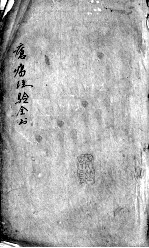 瘡瘍經驗全书